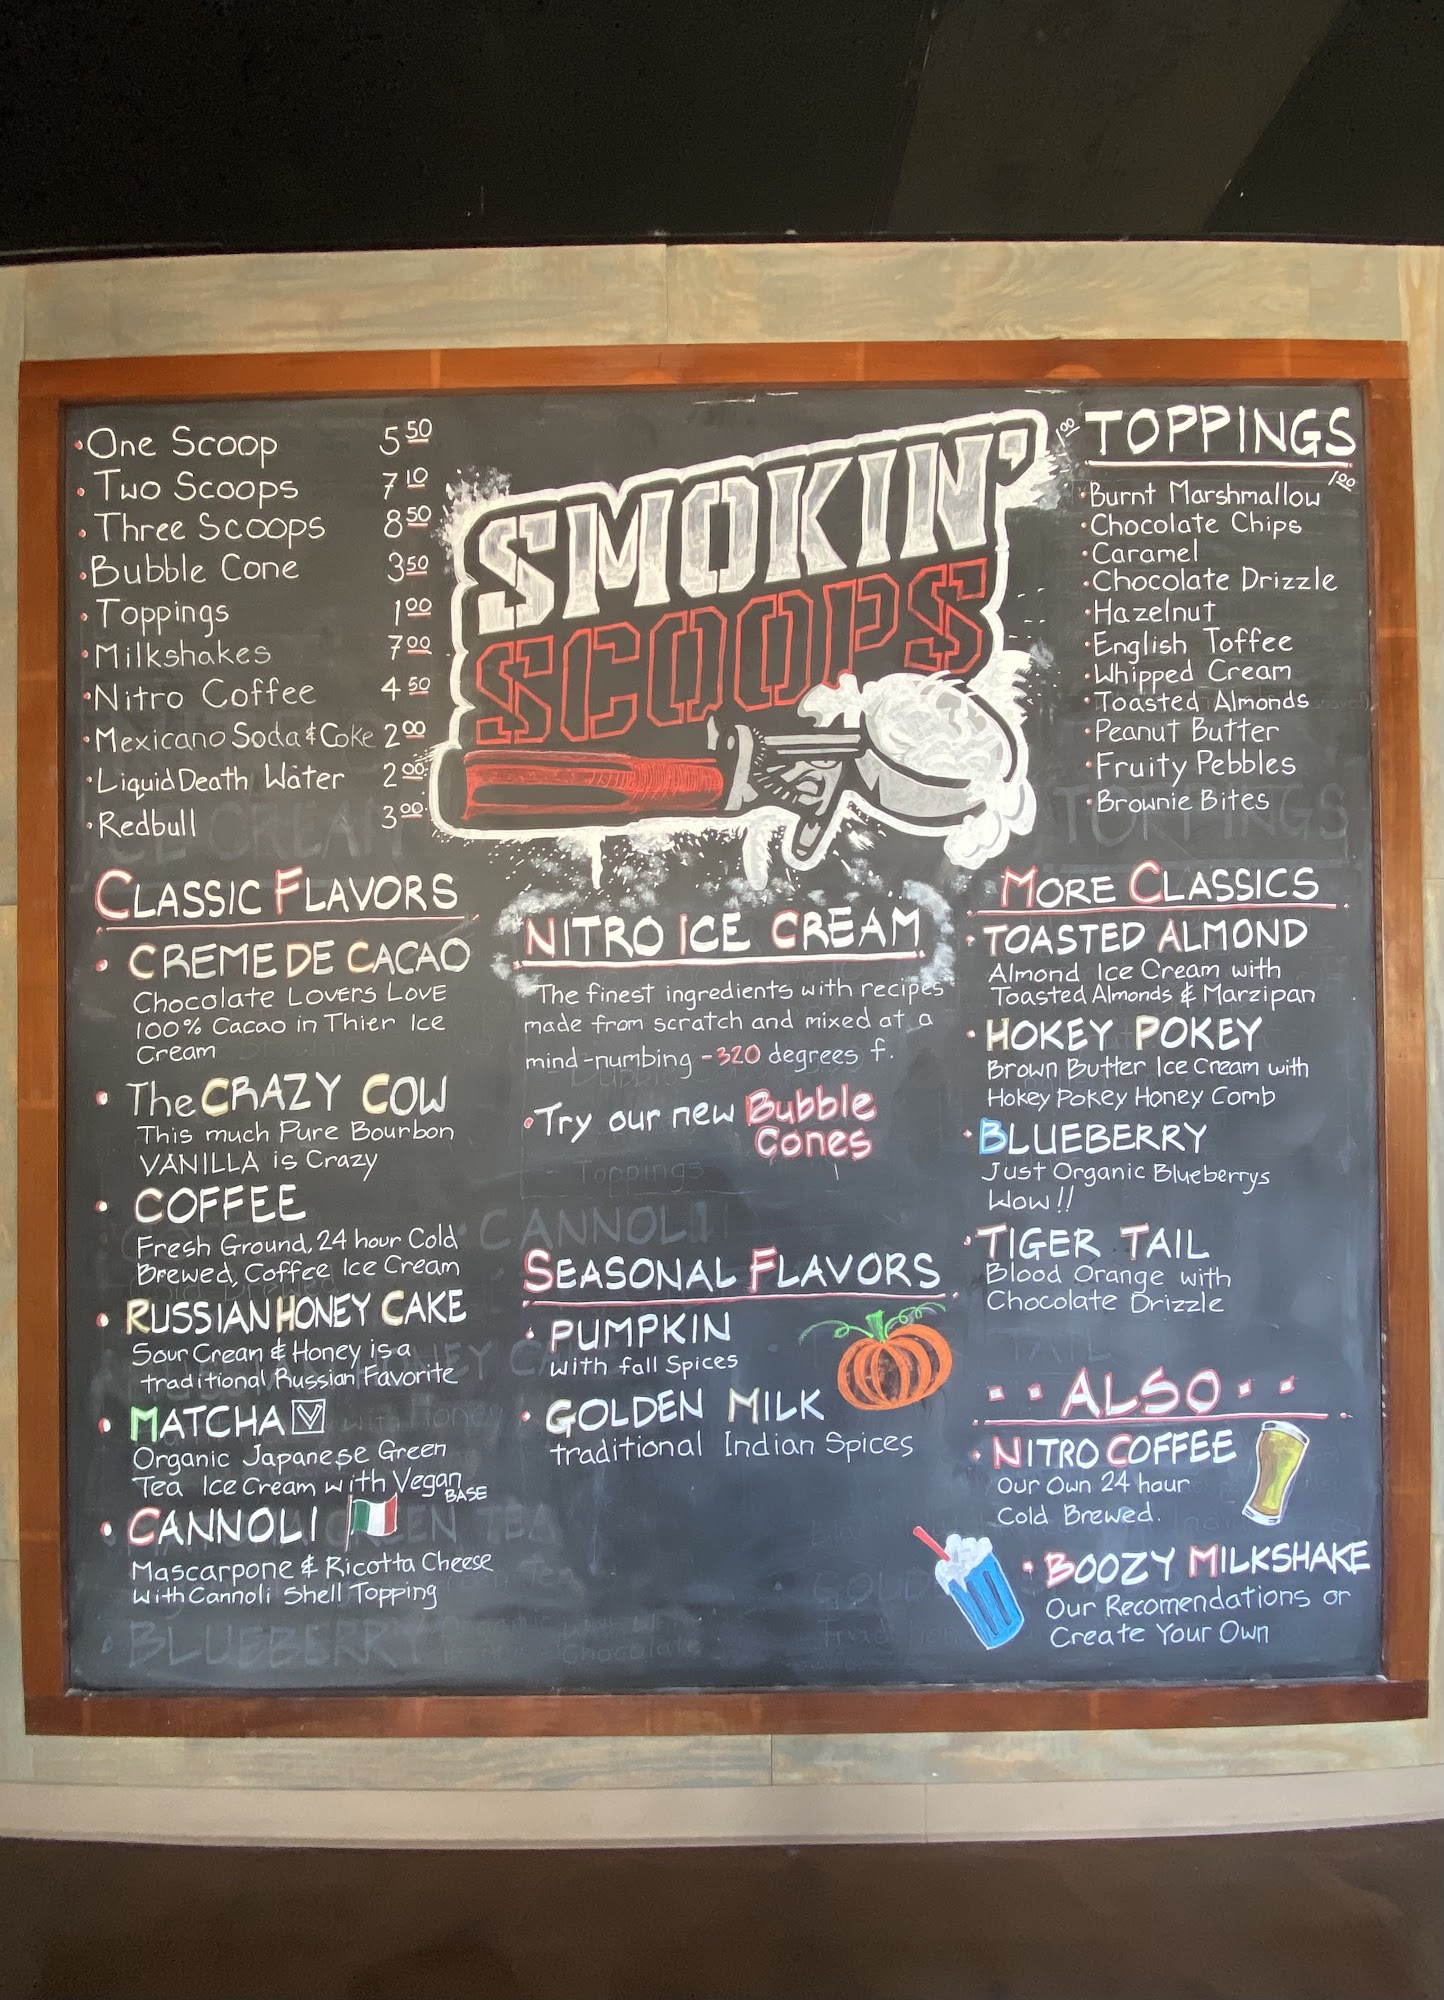 One Scoop 5 50
Two Scoops 7 10
Three Scoops 8 50
Bubble Cone 3 50
Toppings 1 00
Milkshakes 7 00
Nitro Coffee 4 50
Mexicano Soda & Coke 2 00
Liquid Death Water 2 00
Redbull 3 00
SMOKIN'
SCOOPS
1 00 TOPPINGS
1 00
Burnt Marshmallow
Chocolate Chips
Caramel
Chocolate Drizzle
Hazelnut
English Toffee
Whipped Cream
Toasted Almonds
Peanut Butter
Fruity Pebbles
Brownie Bites
CLASSIC FLAVORS
CREME DE CACAO
Chocolate LOVERS LOVE
100% Cacao in Thier Ice
Cream
The CRAZY COW
This much Pure Bourbon
VANILLA is Crazy
COFFEE
Fresh Ground, 24 hour Cold
Brewed, Coffee Ice Cream
RUSSIAN HONEY CAKE
Sour Crean & Honey is a
traditional Russian Favorite
MATCHA V
Organic Japanese Green
Tea Ice Cream with Vegan
BASE
CANNOLI
Mascarpone & Ricotta Cheese
With Cannoli Shell Topping
BLUEBERRY
NITRO ICE CREAM
The finest ingredients with recipes
made from scratch and mixed at a
mind-numbing -320 degrees f.
Try our new Bubble
Cones
Toppings
CANNOLI
SEASONAL FLAVORS
PUMPKIN
with fall Spices
GOLDEN MILK
traditional Indian Spices
MORE CLASSICS
TOASTED ALMOND
Almond Ice Cream with
Toasted Almonds & Marzipan
HOKEY POKEY
Brown Butter Ice Cream with
Hokey Pokey Honey Comb
BLUEBERRY
Just Organic Blueberrys
Wow!!
TIGER TAIL
Blood Orange with
Chocolate Drizzle
ALSO
NITRO COFFEE
Our Own 24 hour
Cold Brewed.
BOOZY MILKSHAKE
Our Recomendations or
Create Your Own